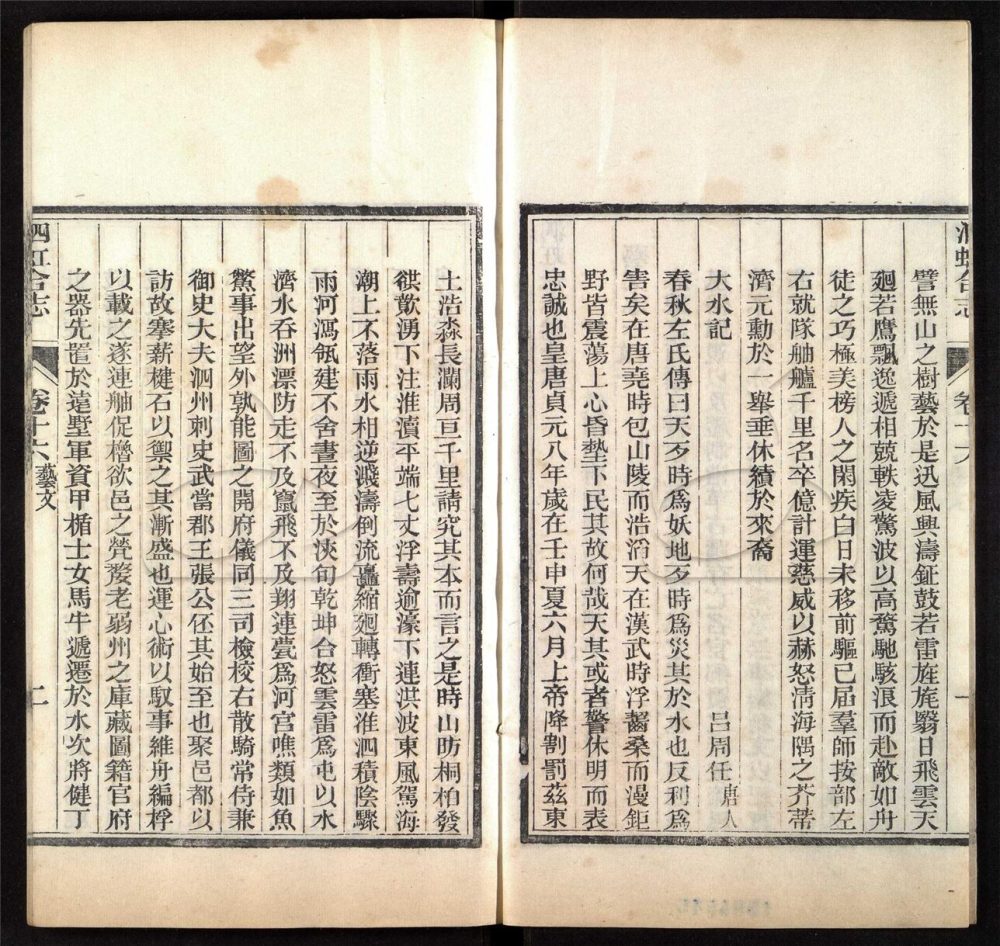 譬無山之樹藝於是迅風興濤鉦鼓若雷旌旄翳日飛雲天
廻若鷹飄逸遞相競軼凌驚波以高騖馳駭浪而赴敵如舟
徒之巧極美榜人之閑疾白日未移前驅已屆羣師按部左
右就隊舳艫千里名卒億計運慈威以赫怒清海隅之芥蒂
濟元勳於一舉垂休績於來裔
大水記 呂周任 唐人
春秋左氏傳曰天歹時爲妖地歹時爲災其於水也反利爲
害矣在唐堯時包山陵而浩滔天在漢武時浮齧桑而漫鉅
野皆震蕩上心昏墊下民其故何哉天其或者警休明而表
忠誠也皇唐貞元八年歲在壬申夏六月上帝降割罰茲東
土浩淼長瀾周亘千里請究其本而言之是時山昉桐柏發
谼歕湧下注淮瀆平端七丈浮壽逾濠下連洪波東風駕海
潮上不落雨水相逆濺濤倒流矗縮廻轉衝塞淮泗積陰驟
雨河瀉瓴建不舍晝夜至於浹旬乾坤合怒雲雷爲屯以水
濟水吞洲漂防走不及竄飛不及翔連甍爲河宮噍類如魚
驚事出望外孰能圖之開府儀同三司檢校右散騎常侍兼
御史大夫泗州刺史武當郡王張公伾其始至也聚邑都以
訪故搴薪楗石以禦之其漸盛也運心術以馭事維舟編桴
以載之遂連舳促櫓欲邑之煢嫠老弱州之庫藏圖籍官府
之器先置於遠墅軍資甲楯士女馬牛遞遷於水次將健丁
泗虹合志 卷十六 藝文 二